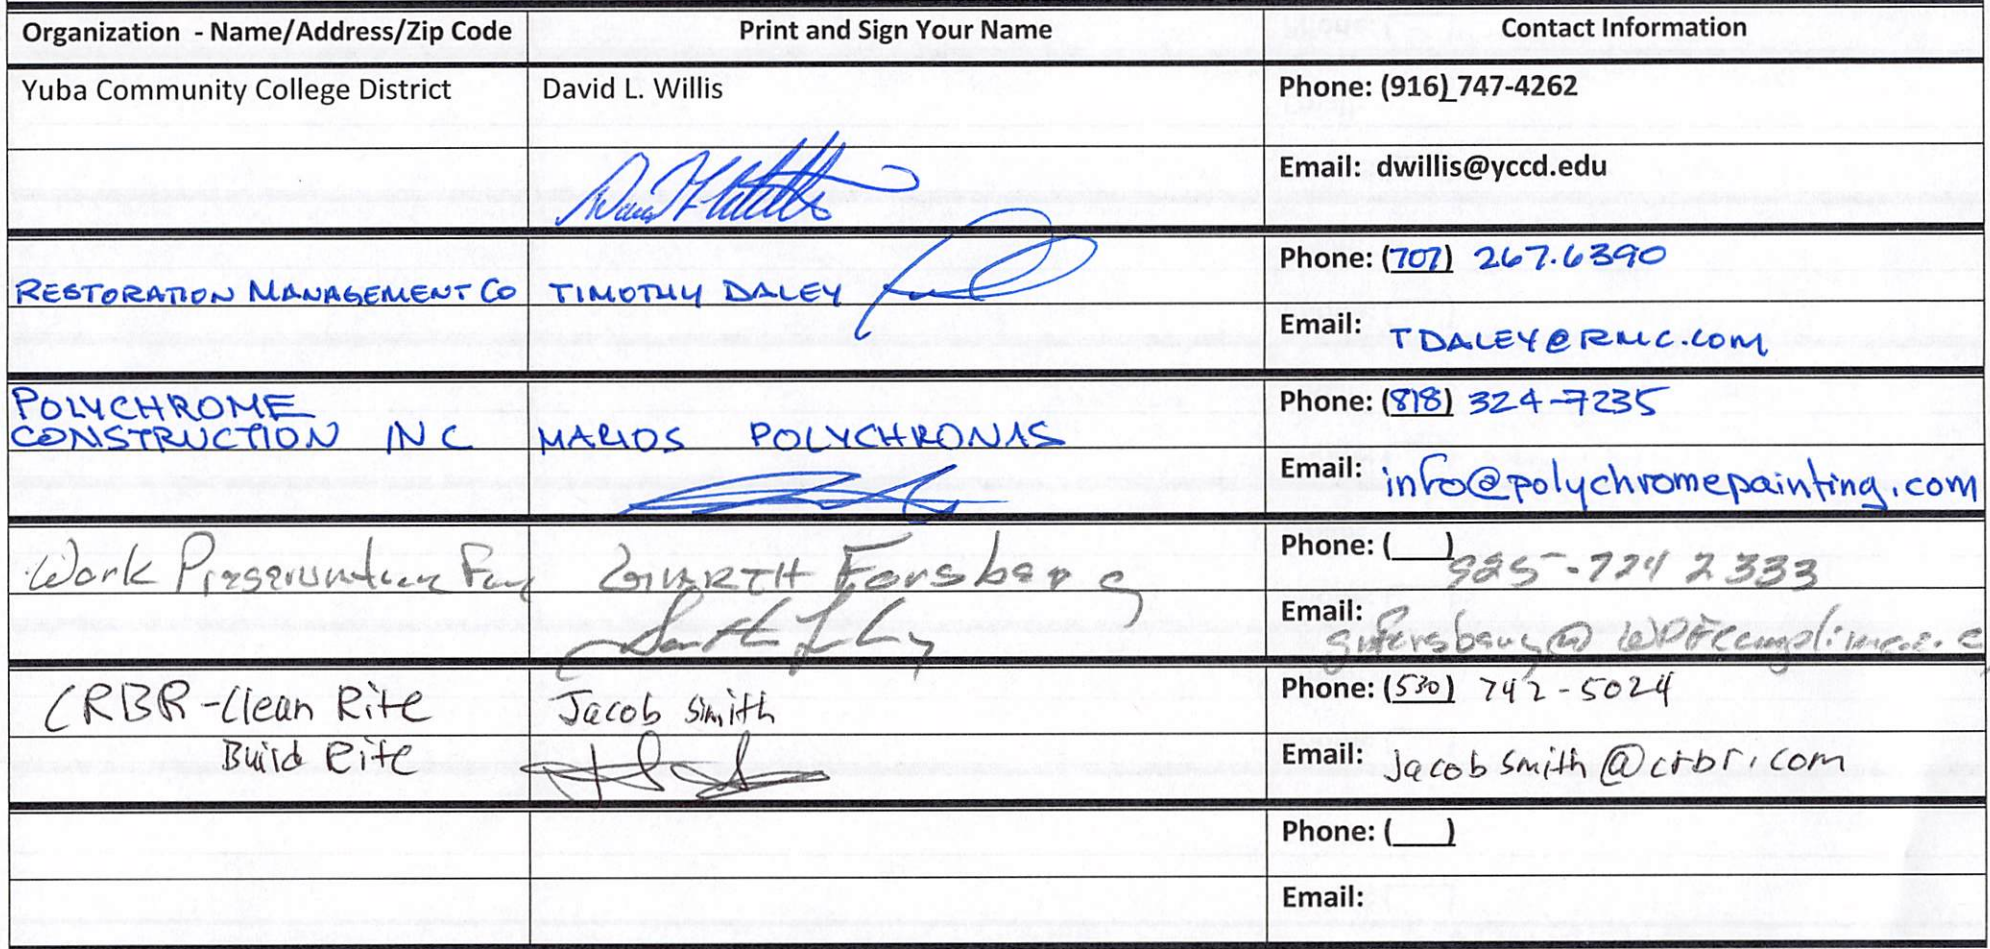 Organization - Name/Address/Zip Code Print and Sign Your Name Contact Information
Yuba Community College District David L. Willis Phone: (916) 747-4262
Email: dwillis@yccd.edu
RESTORATION MANAGEMENT CO TIMOTHY DALEY Phone: (707) 267.6390
Email: TDALEY@RMC.COM
POLYCHROME
CONSTRUCTION INC MARIOS POLYCHRONAS Phone: (818) 324-7235
Email: info@polychromepainting.com
Work Forsberg Phone: ( ) 2333
Email:
CRBR-Clean Rite Jacob Smith Phone: (530) 742-5024
Build Rite Email: Jacobsmith@crbr.com
Phone: ( )
Email: